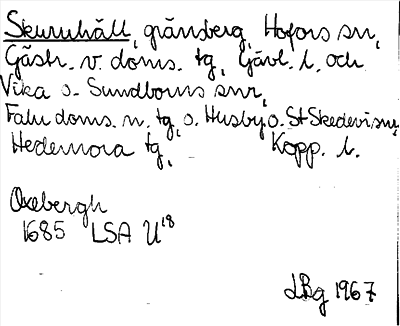 Skuruhäll, gränsberg, Hofors sn,
Gästr. v. doms. tg, Gävl. l. och
Vika o. Sundborns snr,
Falu doms. n. tg, o. Husby o. St Skedevi snr,
Hedemora tg, Kopp. l.
Oxebergh
1685 LSA U18
LBg 1967